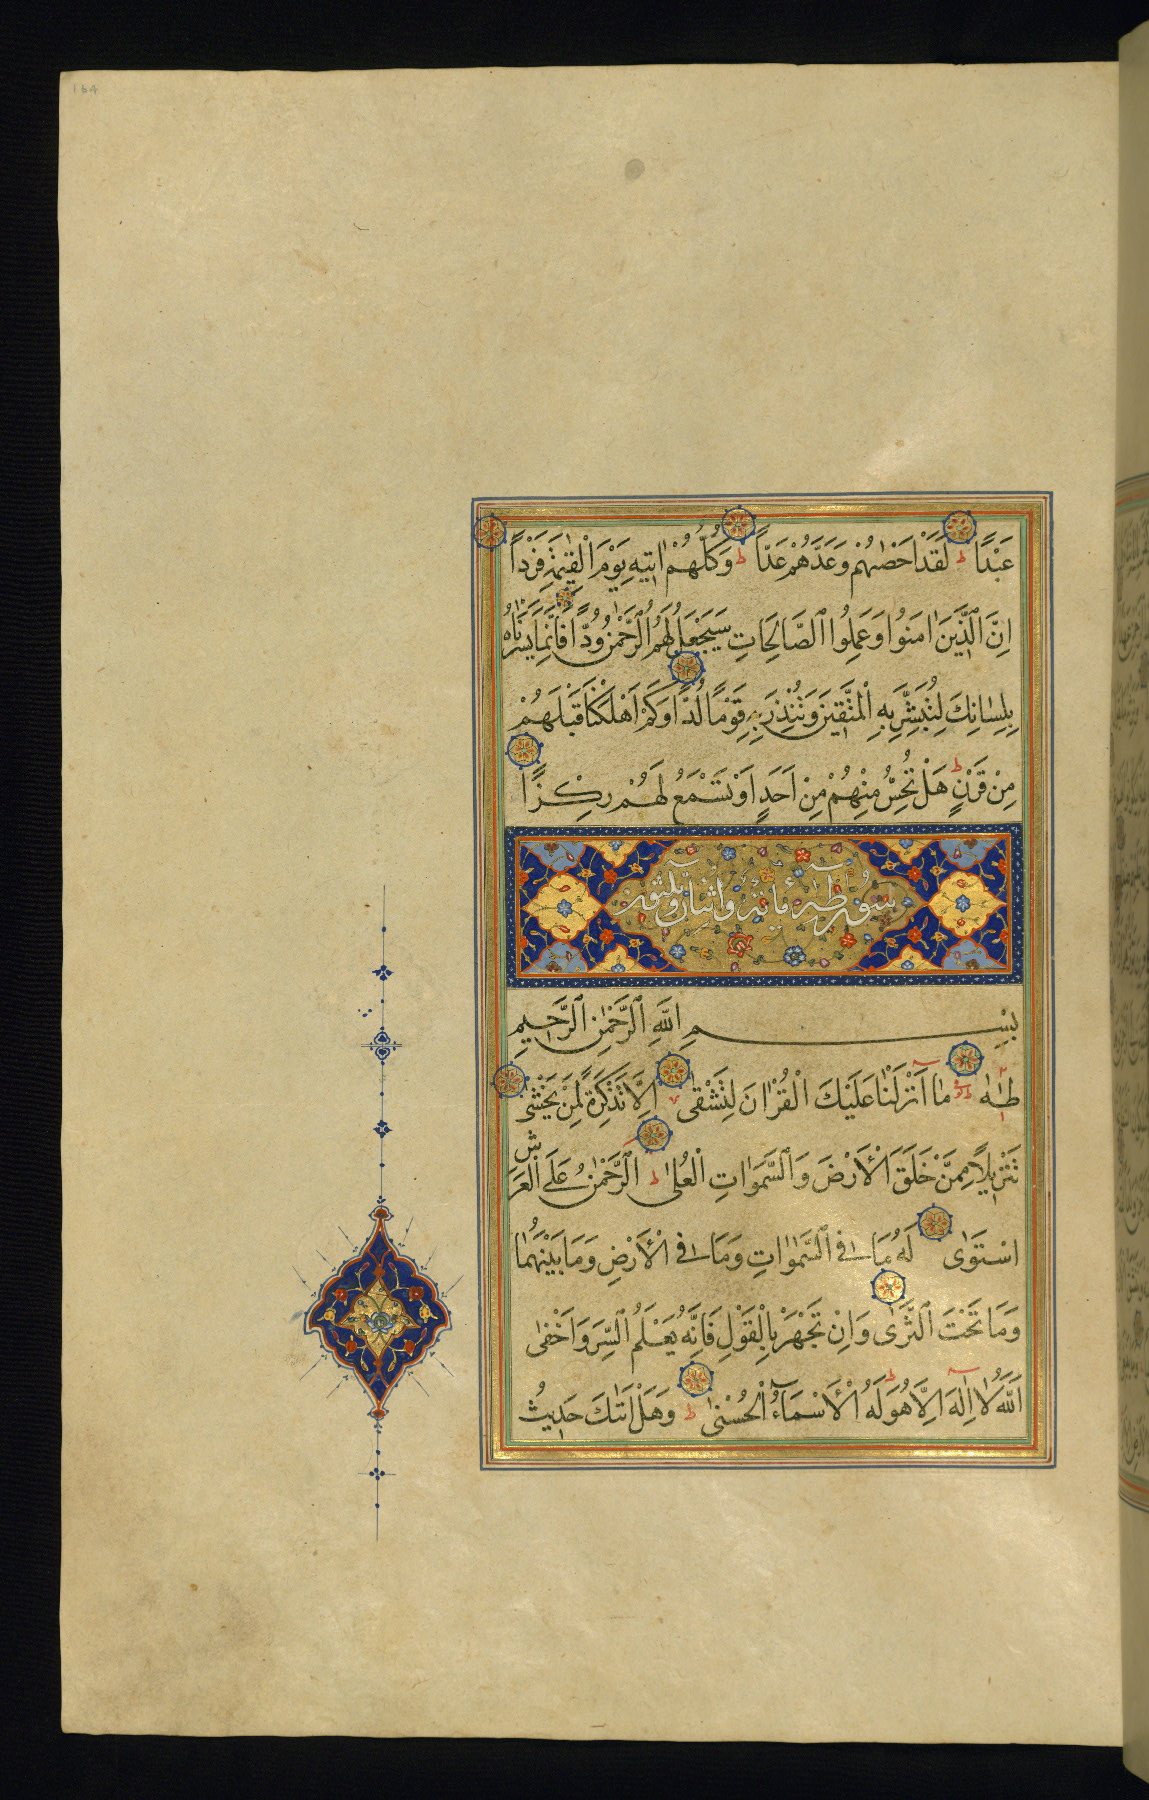 154
عَبْدًا ط لَقَدْ اَحْصٰىهُمْ وَعَدَّهُمْ عَدًّا ط وَكُلُّهُمْ اٰتِيهِ يَوْمَ الْقِيٰمَةِ فَرْدًا
اِنَّ الَّذِينَ اٰمَنُوا وَعَمِلُوا الصَّالِحَاتِ سَيَجْعَلُ لَهُمُ الرَّحْمٰنُ وُدًّا فَاِنَّمَا يَسَّرْنَاهُ
بِلِسَانِكَ لِتُبَشِّرَ بِهِ الْمُتَّقِينَ وَتُنْذِرَ بِهِ قَوْمًا لُدًّا وَكَمْ اَهْلَكْنَا قَبْلَهُمْ
مِنْ قَرْنٍ ط هَلْ تُحِسُّ مِنْهُمْ مِنْ اَحَدٍ اَوْ تَسْمَعُ لَهُمْ رِكْزًا
سورة طه مائة واثنان وثلثون
بِسْمِ اللّٰهِ الرَّحْمٰنِ الرَّحِيمِ
طٰهٰ مَا اَنْزَلْنَا عَلَيْكَ الْقُرْاٰنَ لِتَشْقٰى اِلَّا تَذْكِرَةً لِمَنْ يَخْشٰى
تَنْزِيلًا مِمَّنْ خَلَقَ الْاَرْضَ وَالسَّمٰوَاتِ الْعُلٰى ط اَلرَّحْمٰنُ عَلَى الْعَرْش
اسْتَوٰى لَهُ مَا فِي السَّمٰوَاتِ وَمَا فِي الْاَرْضِ وَمَا بَيْنَهُمَا
وَمَا تَحْتَ الثَّرٰى وَاِنْ تَجْهَرْ بِالْقَوْلِ فَاِنَّهُ يَعْلَمُ السِّرَّ وَاَخْفٰى
اَللّٰهُ لَا اِلٰهَ اِلَّا هُوَ ط لَهُ الْاَسْمَاءُ الْحُسْنٰى ط وَهَلْ اَتٰىكَ حَدِيثُ